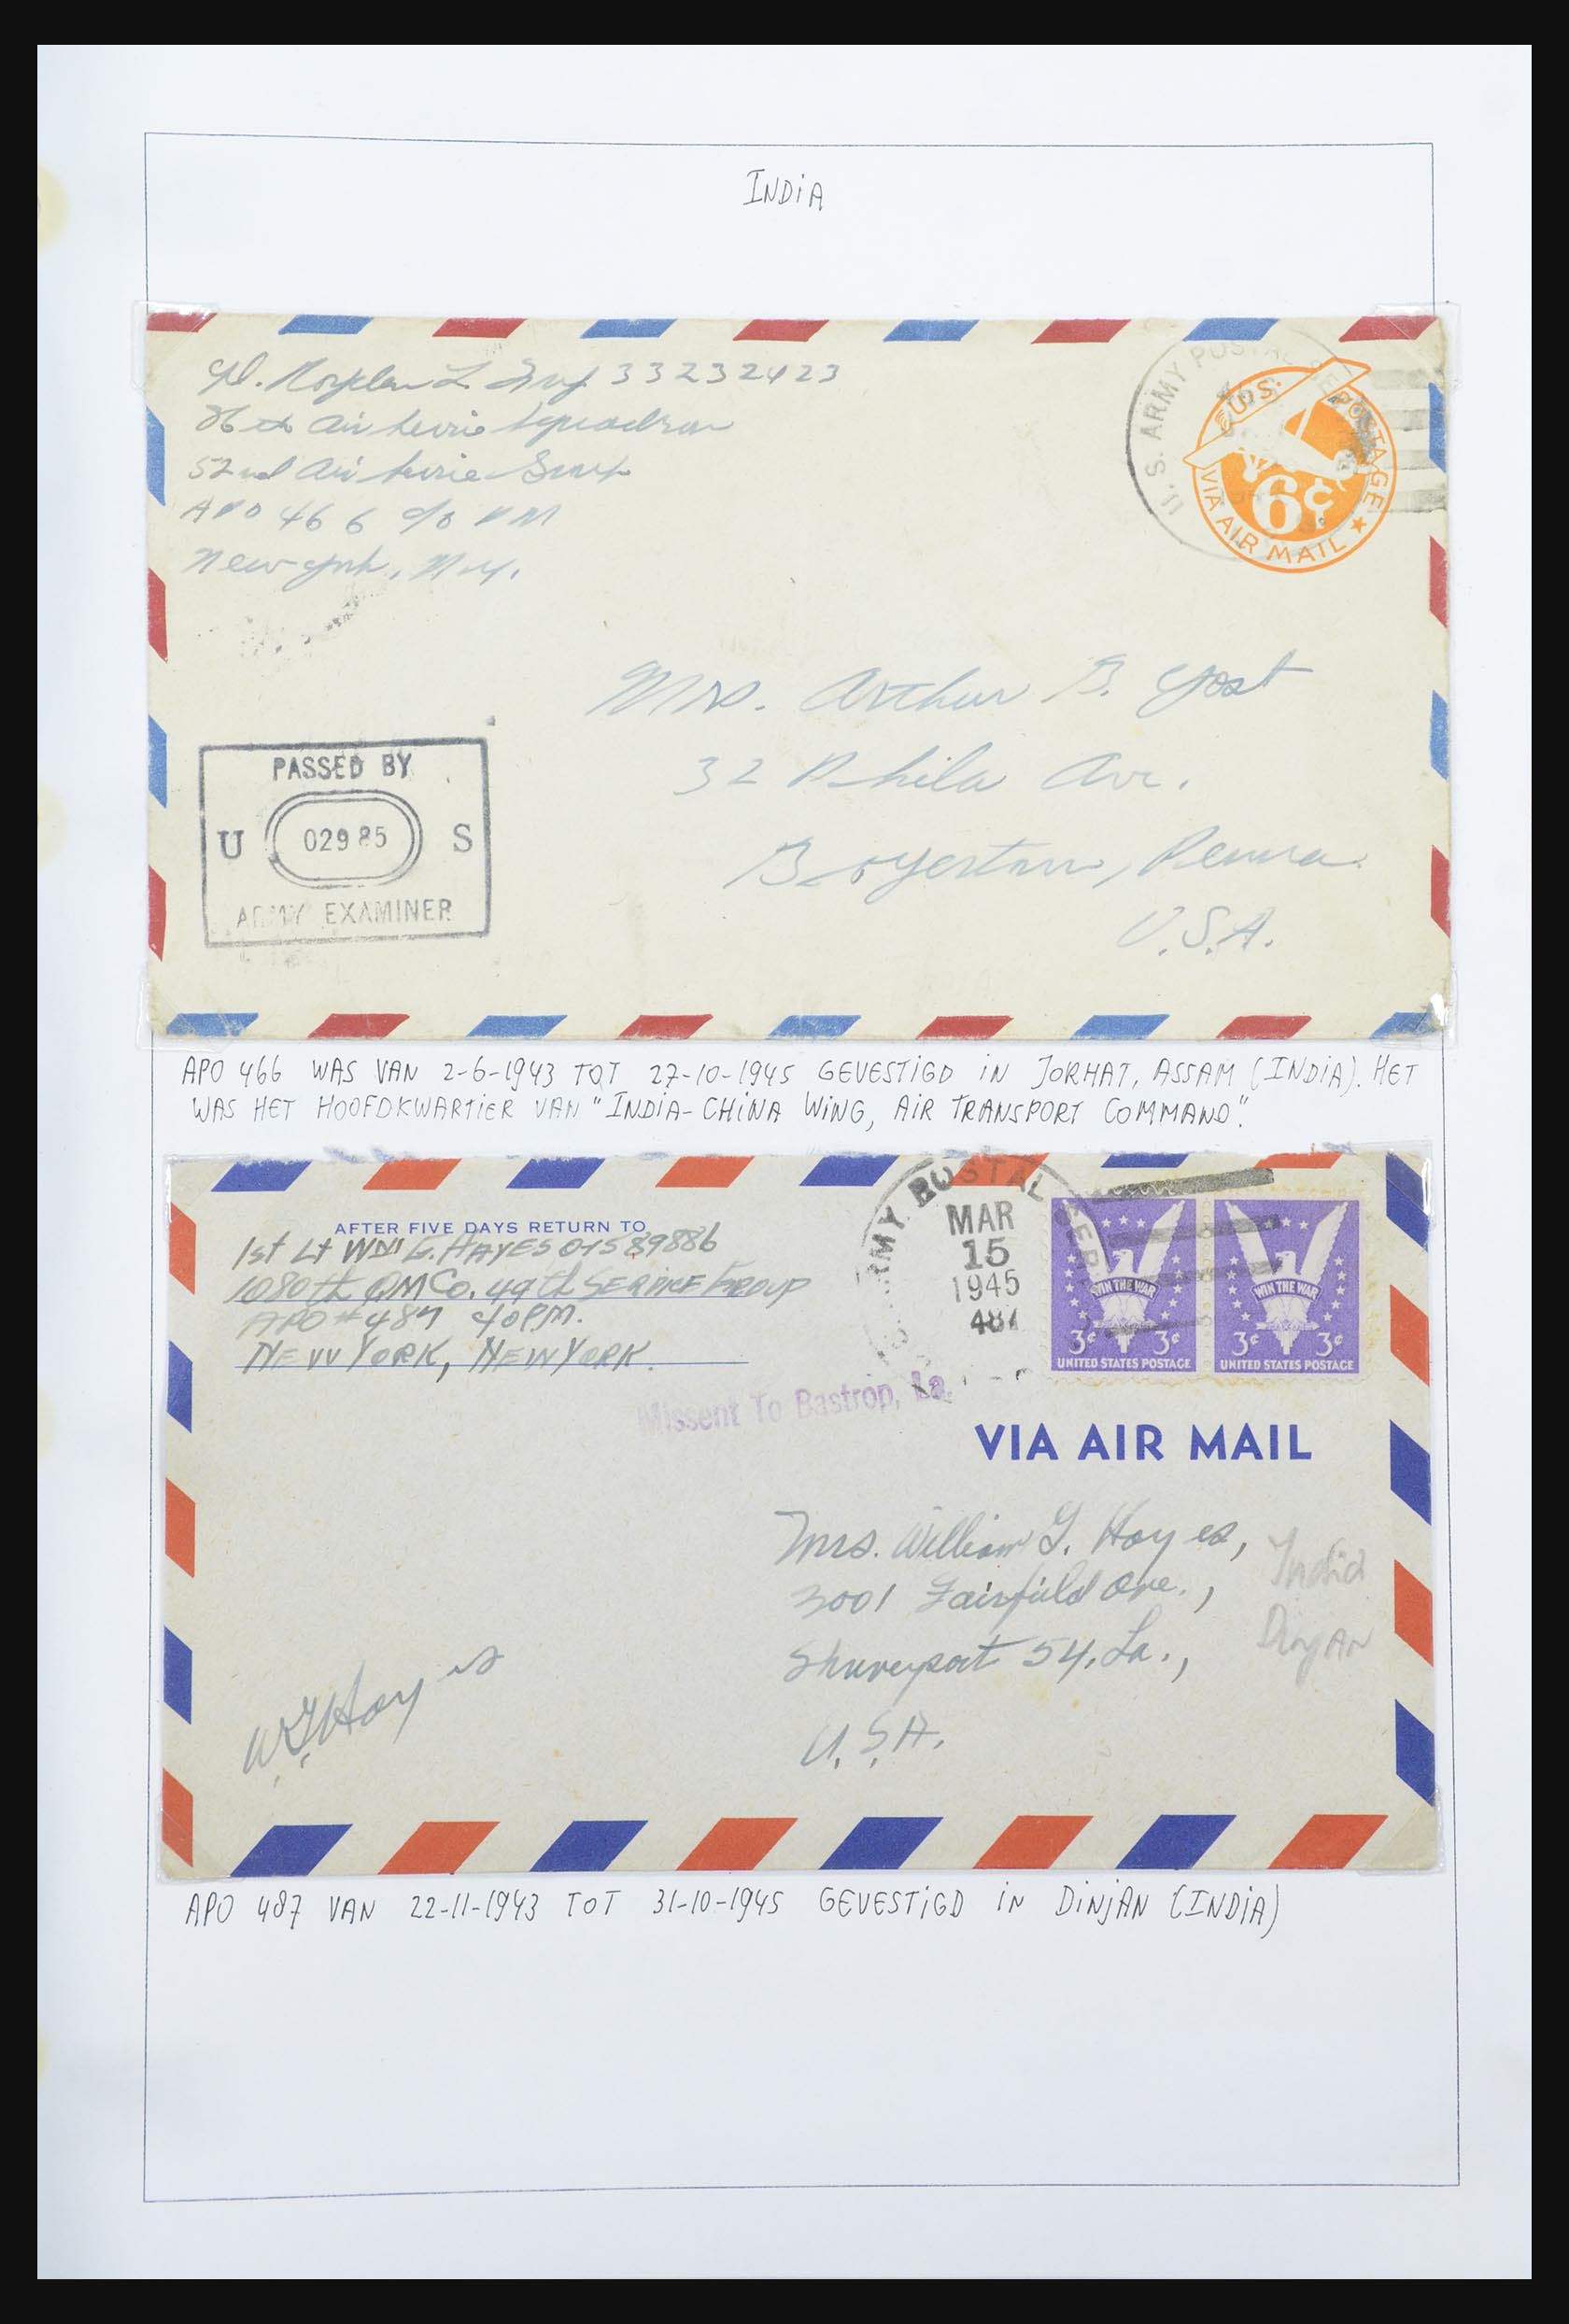 INDIA
33232423
Air Service Squadron
52nd Air Service Group
APO 466 c/o PM
New York, N.Y.
U.S. ARMY POSTAL SE
U.S. POSTAGE
6¢
VIA AIR MAIL
Mrs. Arthur B. Yost
32 Phila Ave.
Boyertown, Penna.
U.S.A.
PASSED BY
U 02985 S
ARMY EXAMINER
APO 466 WAS VAN 2-6-1943 TOT 27-10-1945 GEVESTIGD IN JORHAT, ASSAM (INDIA). HET
WAS HET HOOFDKWARTIER VAN "INDIA-CHINA WING, AIR TRANSPORT COMMAND".
AFTER FIVE DAYS RETURN TO
1st Lt Wm G. HAYES 01589886
1080th QM Co. 49th SERVICE GROUP
APO # 487 c/o PM.
NEW YORK, NEW YORK.
ARMY POSTAL SER
MAR
15
1945
487
WIN THE WAR
3¢ 3¢
UNITED STATES POSTAGE
WIN THE WAR
3¢ 3¢
UNITED STATES POSTAGE
Missent To Bastrop, La.
VIA AIR MAIL
Mrs. William G. Hayes,
3001 Fairfield Ave.,
Shreveport 54, La.,
U.S.A.
India
Dinjan
WGHayes
APO 487 VAN 22-11-1943 TOT 31-10-1945 GEVESTIGD IN DINJAN (INDIA)